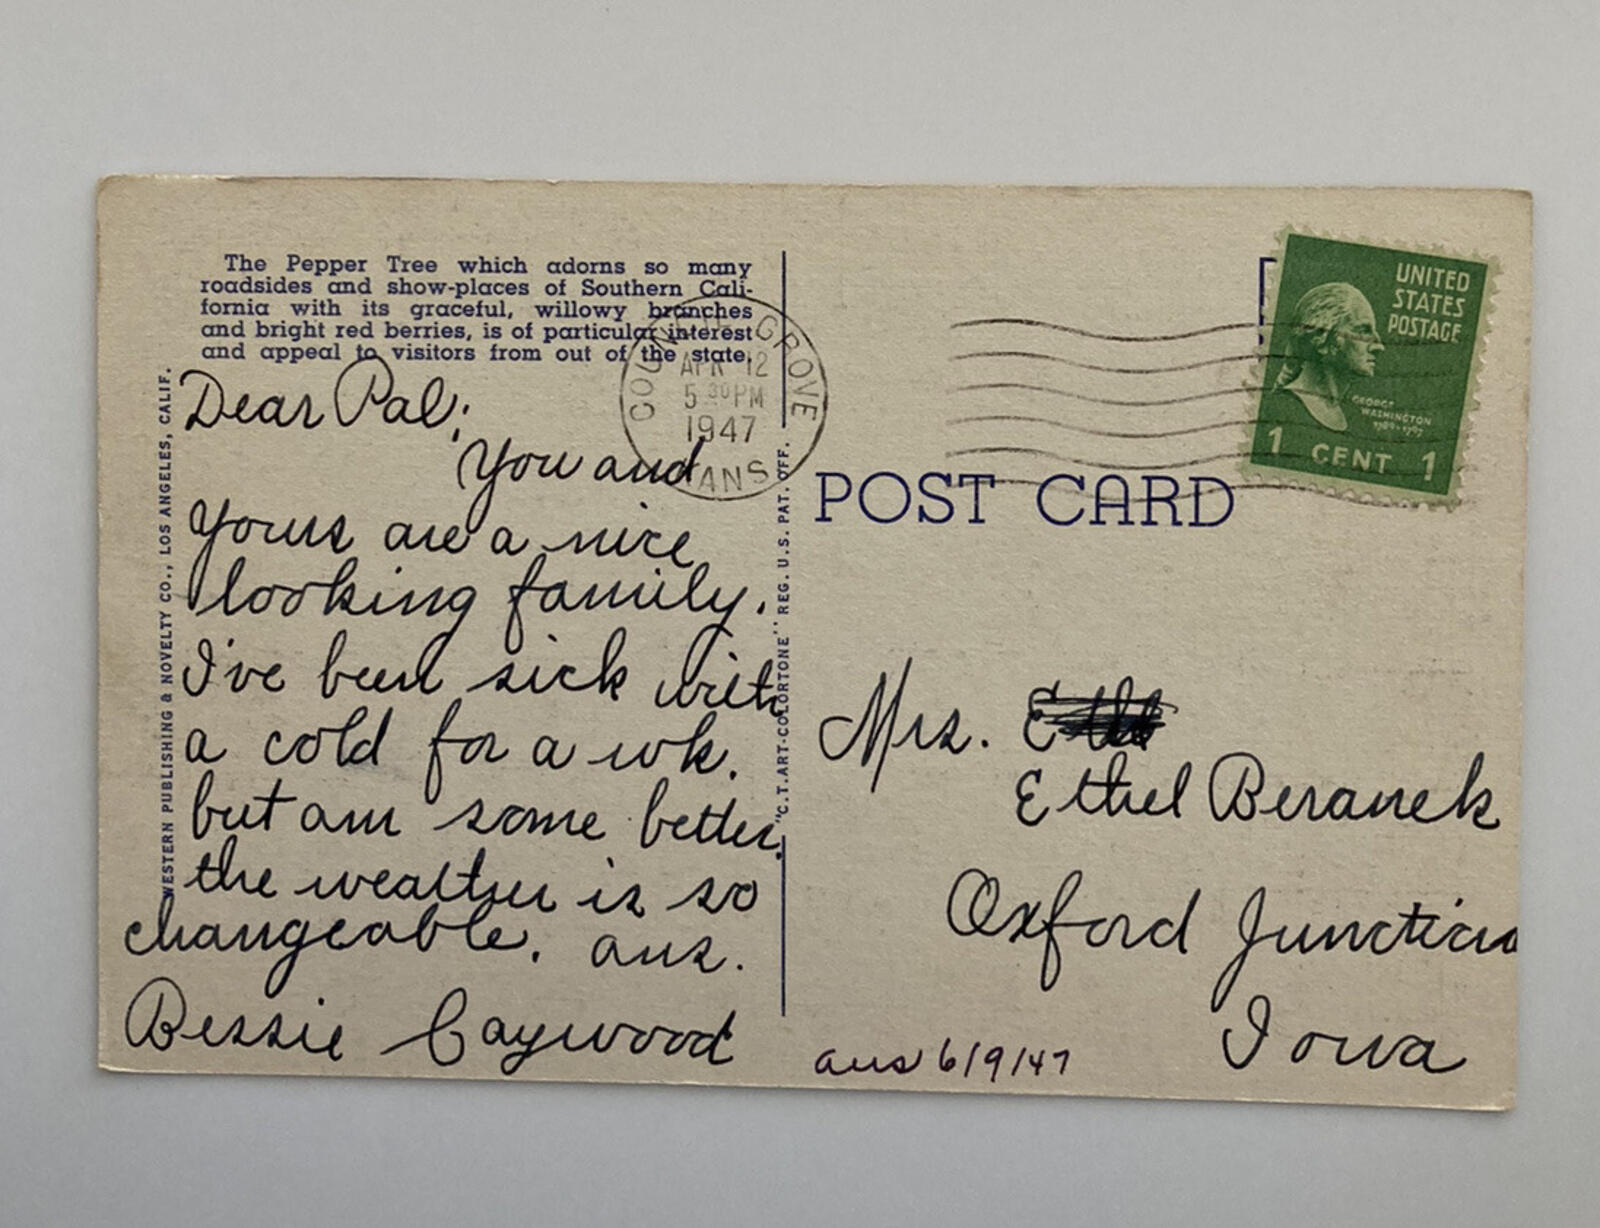 The Pepper Tree which adorns so many
roadsides and show-places of Southern Cali-
fornia with its graceful, willowy branches
and bright red berries, is of particular interest
and appeal to visitors from out of the state.
WESTERN PUBLISHING & NOVELTY CO., LOS ANGELES, CALIF.
Dear Pal;
You and
yours are a nice
looking family.
I've been sick with
a cold for a wk.
but am some better.
the weather is so
changeable. ans.
Bessie Caywood
GROVE
APR 12
5 30 PM
1947
KANS
"C.T. ART-COLORTONE" REG. U.S. PAT. OFF.
POST CARD
UNITED
STATES
POSTAGE
GEORGE
WASHINGTON
1789-1797
1 CENT 1
Mrs.
Ethel Beranek
Oxford Junction
Iowa
ans 6/9/47